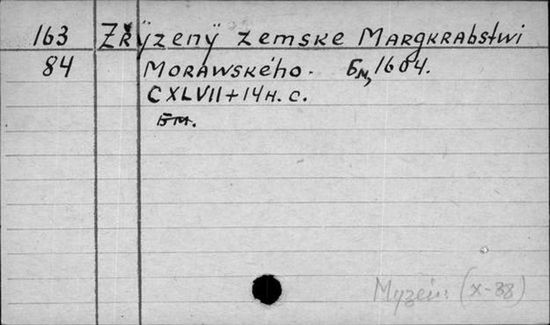 163 Zřÿzenÿ zemske Margkrabstwi
84 Morawského. Бм, 1604.
CXLVII+14н. с.
Бм.
Музеин (X-38)